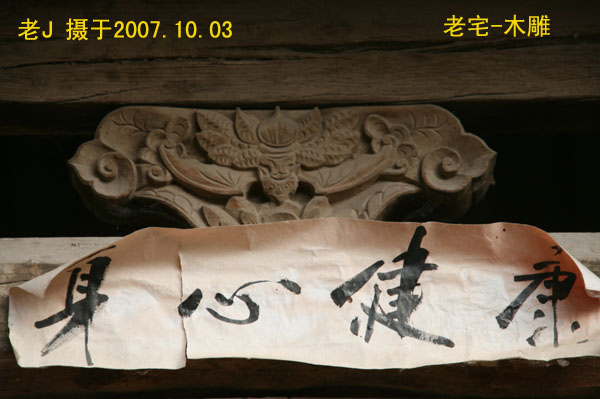 老J 摄于2007.10.03
老宅-木雕
身心健康